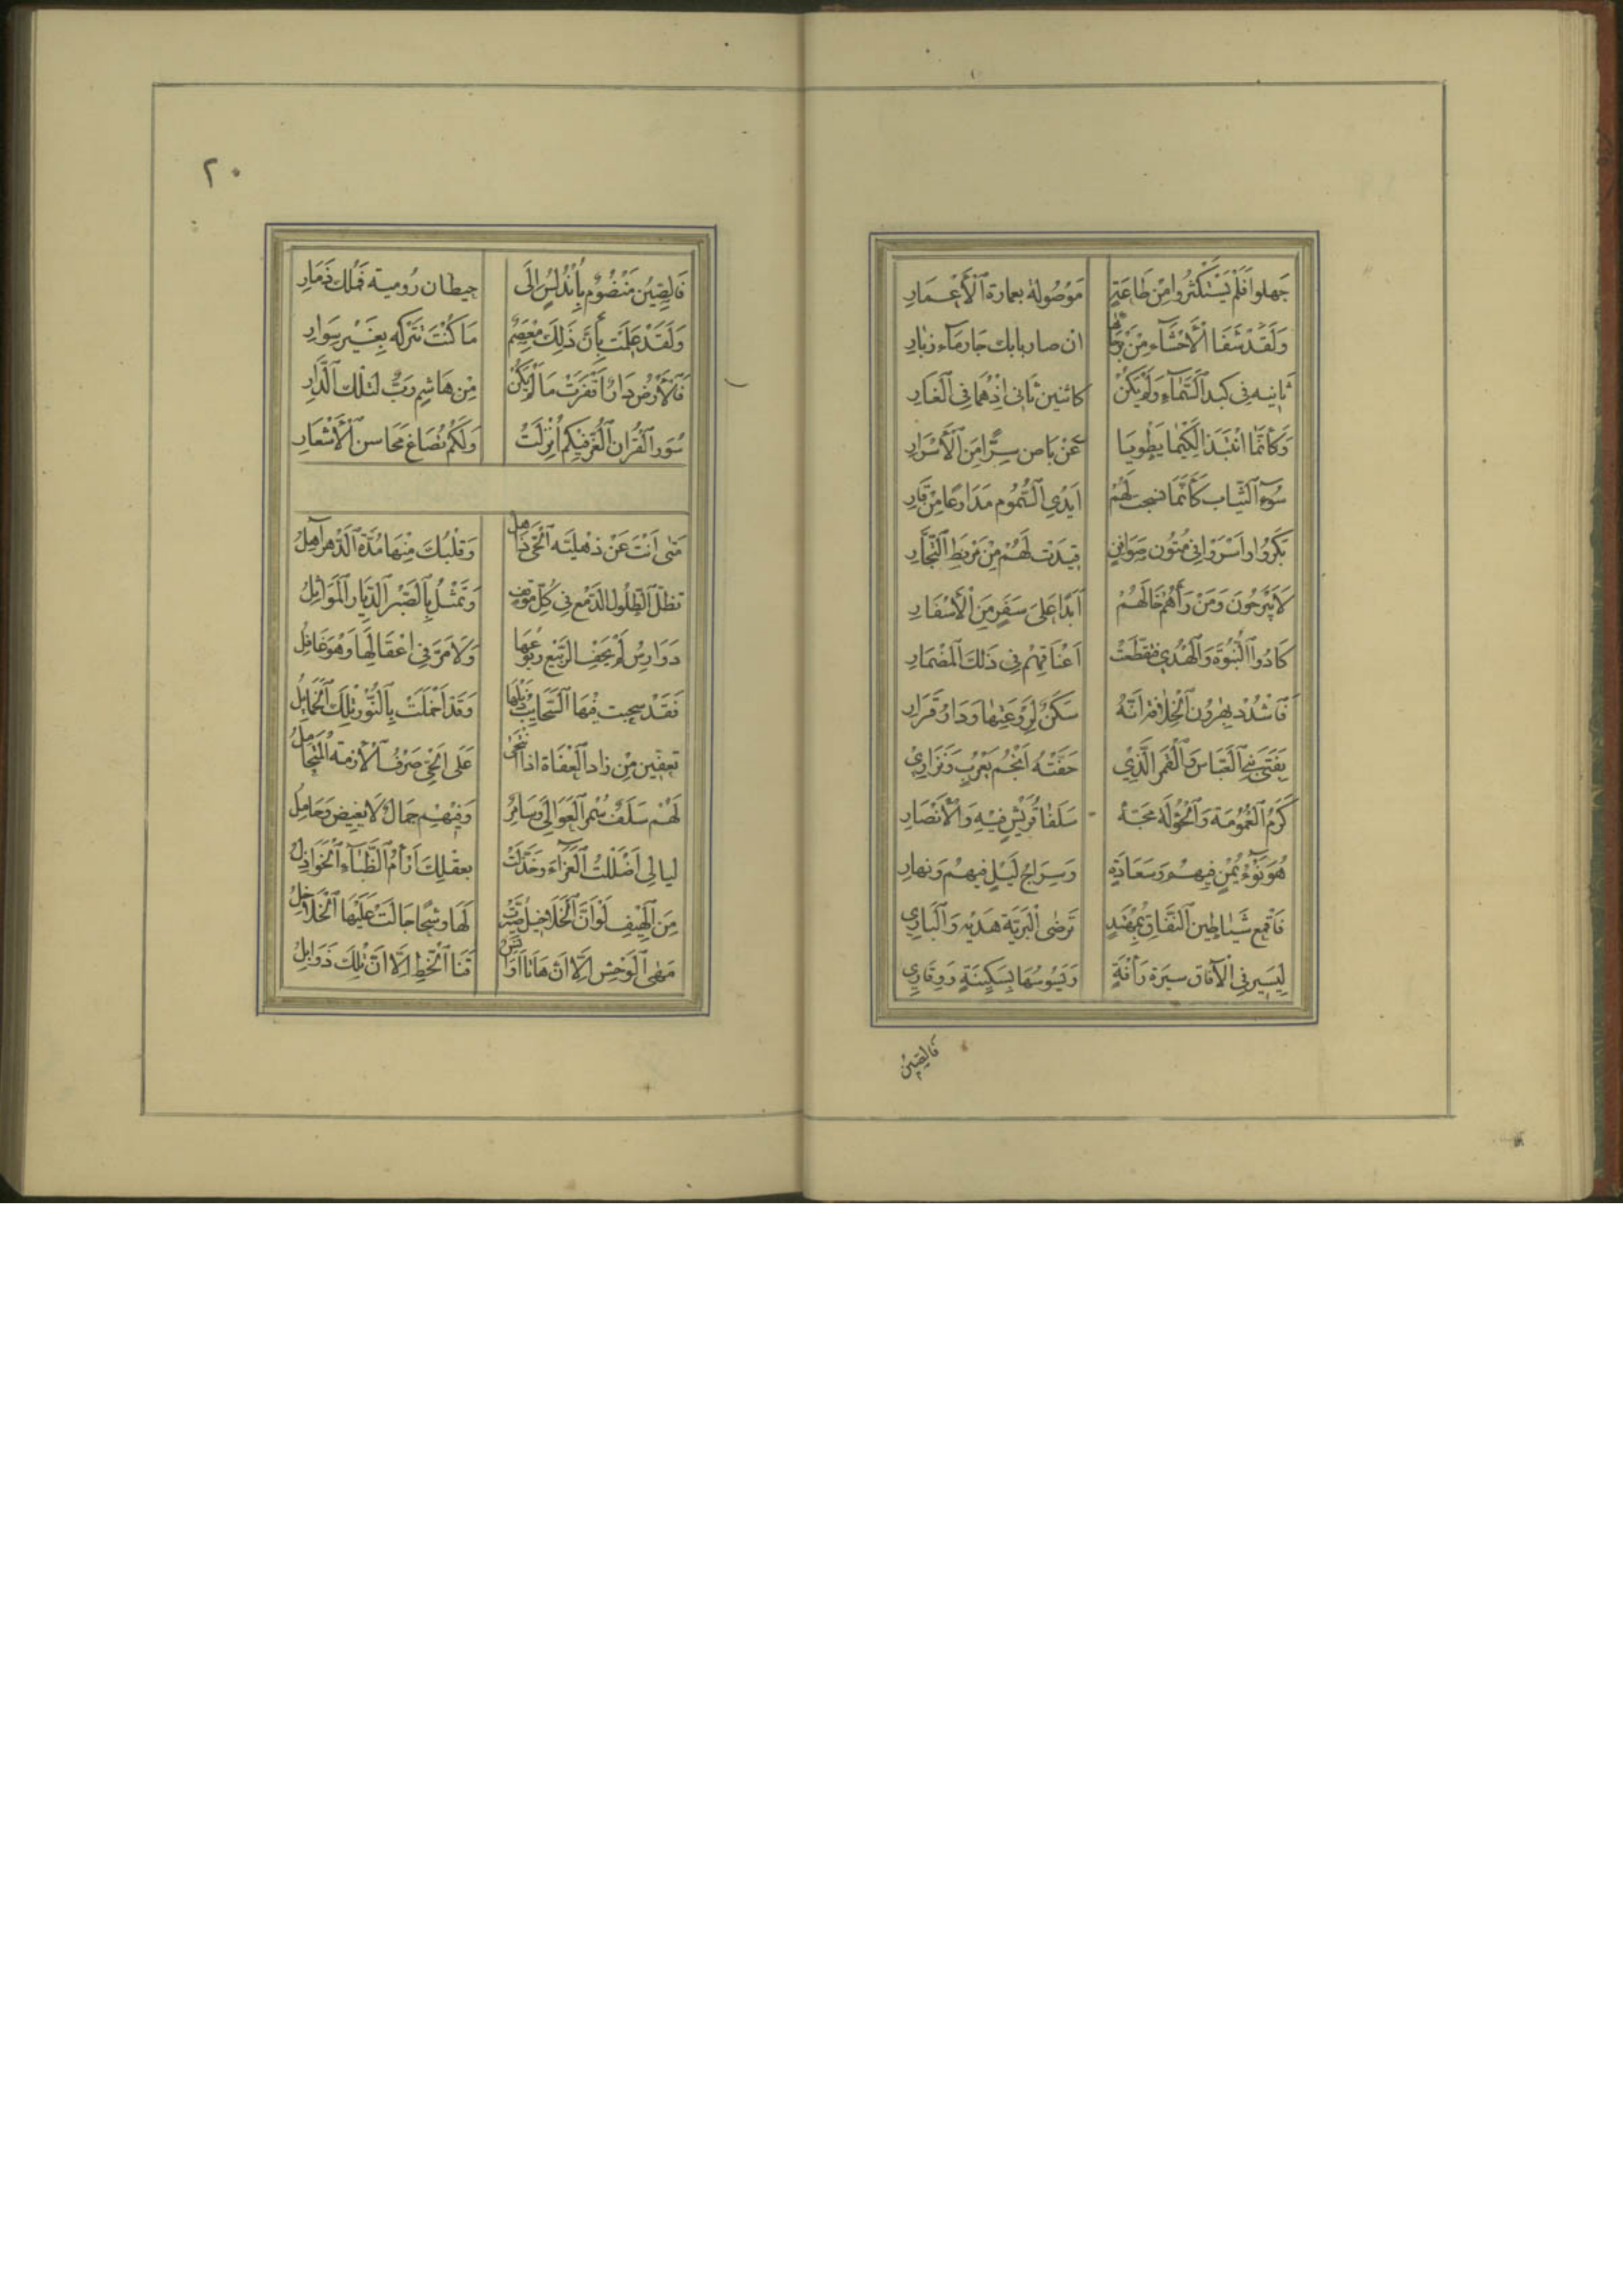 جَهلوا فَلَمْ يَسْتَكْثِرُوا مِنْ طَاعَةٍ مَوْصُولَة بعمارة الْأَعْمَارِ
وَلَقَدْ شَفَا الْأَحْشَاءِ مِنْ بُرَحَائِهَا ان صار بابك جَار مَا زيَارِ
ثانيه فى كبد السَّمَاءِ وَلَمْ يَكُنْ كاثنين ثانى اذْ هُمَا فِى الْغَارِ
وَكَأَنَّمَا انْتَبَذَا لِكَيْمَا يَطْوِيَا عَنْ بَاطس سِرًّا مِنَ الْأَسْرَارِ
سُود الثِّيَاب كَأَنَّمَا نسجت لَهُمْ اَيْدِي السُّمُوم مَدَارِعًا مِنْ قَارِ
بَكَرُوا وَاَسْرَوْا فِى مُتُون صَوَافِنٍ قِيدَت لَهُمْ مِنْ مَرْبَطِ النَّجَّارِ
لَا يَبْرَحُونَ وَمَنْ رَأَهُمْ خَالَهُمْ اَبَدًا عَلَى سَفَرٍ مِنَ الْأَسْفَارِ
كَادُوا النُّبُوَّةَ وَالْهُدٰي فتقطعت اَعْنَاقِهُم فِى ذَلِكَ الْمِضْمَارِ
فَاشْدُدْ بهٰرُون الْخِلَافَة اِنَّهُ سَكَنٌ لِوَحْشَتِهَا وَدَارُ قَرَارِ
بِفَتَى بَنِى الْعَبَّاس وَالْقَمَر الَّذِي حَفَّتْهُ اَنْجُم يَعْرُبٍ وَنِزَارِي
كَرَمُ الْعُمُومَة وَالْخُؤُولَة مَجَّهُ سَلَفَا قُرَيْشٍ فِيهِ وَالْأَنْصَارِ
هُوَ نَوْءُ يُمْنٍ فِيهُمْ وَسَعَادَةٍ وَسِرَاجُ لَيْلٍ فِيهُمْ وَنهارِ
فَاقْمَعْ شَيَاطِين النِّفَاق بِمُهْتَدٍ تَرْضٰى الْبَرِيَّة هَدْيَه وَالْبَارِي
لِيَسِير فِى الْآفَاق سِيرَة رَأْفَةٍ وَيَسُوسُهَا بِسَكِينَةٍ وَوِقَارِي
فَالصِّيْنُ
٢٠
فَالصِّيْنُ مَنْظُومٌ بِأَنْدُلُسٍ اِلَى حيطان رُوميَة فَمُلك ذَمَارِ
وَلَقَدْ عَلِمْت بِأَنَّ ذَلِكَ مِعْصَمٌ مَا كُنْتَ تَتْرُكُه بِغَيْر سِوَارِ
فَالْأَرْضُ دَارٌ اَقْفَرَتْ مَا لَمْ يَكُنْ مِن هَاشِم رَبٌّ لتلك الدَّارِ
سُوَر الْقُرَان الْغُرّ فِيكُم اُنْزِلَتْ وَلَكُم تُصَاغ مَحَاسن الْأَشْعَارِ
مَتٰى اَنْتَ عَنْ ذهْلِيَّه الْحَىّ ذَاهِلُ وَقَلْبُكَ مِنْهَا مُدَّة الدَّهْر آهِلُ
تطلّ الطُلُول الدَّمْع فِى كُلّ مَوْقف وَتَمْثُل بِالصَّبْر الدِّيَار الْمَوَاثِلُ
دَوَارِسُ لَمْ يَجْفِ الرَّبِيع رُبُوعَهَا وَلَا مَرّ فِى اغْفَالِهَا وَهُوَ غَافِلُ
فَقَدْ سحبت فِيهَا السَّحَايِبُ ذَيْلَهَا وَقَدْ اَخْمَلَتْ بِالنُّوْر تِلْكَ الْخَمَايِلُ
تعفين مِنْ زاد الْعُفَاة اذا انْتَحَى عَلَى الْحَىّ صَرْفُ الْأَزمةُ الْمُتَحَامِلُ
لَهُمْ سَلَفٌ سُمْر الْعَوَالِى وَسَامِرٌ وَفِيْهُم جَمَالٌ لَا يغيض وَجَامِلُ
ليالى اَضْلَلْتُ الْعَزَاء وَخَذَّلَتْ بعقلك اَرْآمُ الظِّبَاءِ الْخَوَاذِلُ
مِنَ الْهِيفِ لَوْ اَنَّ الْخَلَاخِيلَ صُيِّرَتْ لَهَا وِشُحًا جَالَتْ عَلَيْهَا الْخَلَاخِلُ
مَهٰى الْوَحْش اِلَّا اَنَّ هَاتَا اَوَانِسٌ قَنَا الْخَطِّ اِلَّا اَنَّ تِلْكَ ذَوَابِلُ